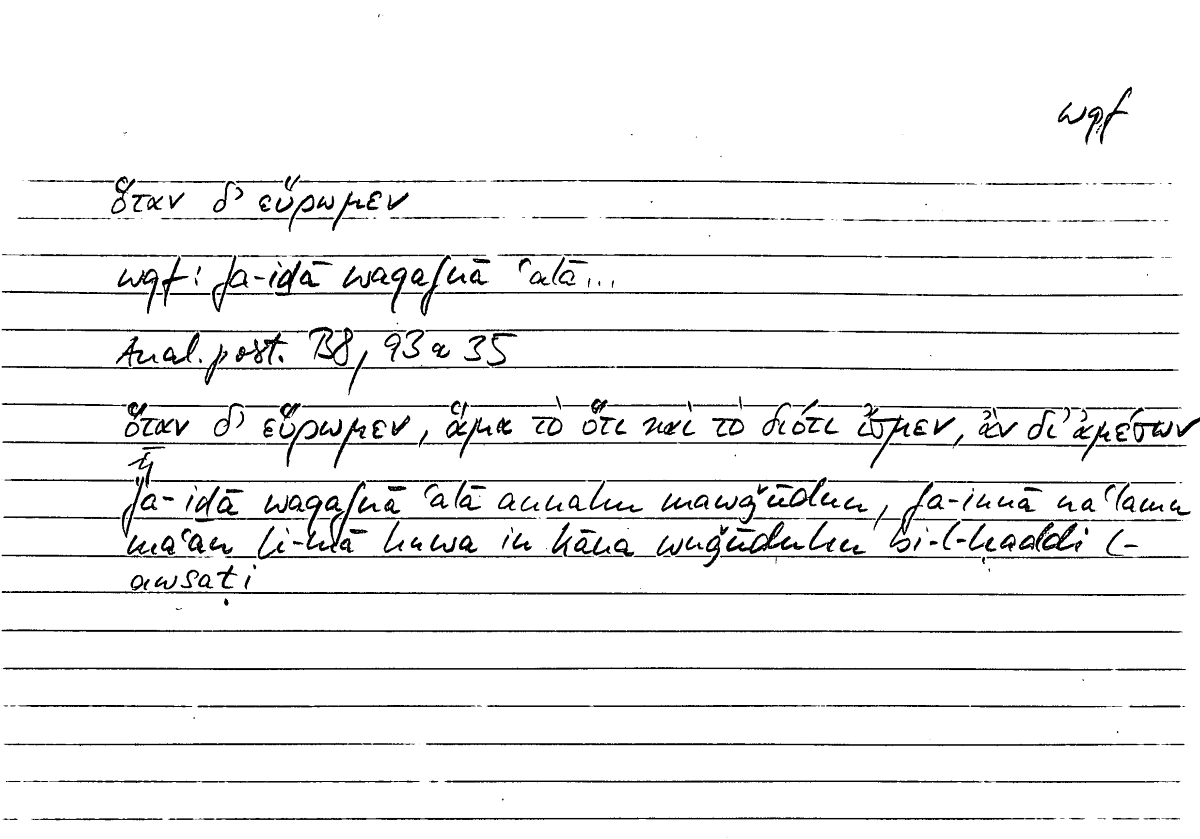 wqf
ὅταν δ’ εὕρωμεν
wqf: fa-iḏā waqafnā ʿalā...
Anal. post. B8, 93 a 35
ὅταν δ’ εὕρωμεν, ἅμα τὸ ὅτι καὶ τὸ διότι ἴσμεν, ἂν δι’ ἀμέσων
ᾖ
fa-iḏā waqafnā ʿalā annahu mawǧūdun, fa-innā naʿlamu
maʿan li-mā huwa in kāna wuǧūduhu bi-l-ḥaddi l-
awsaṭi